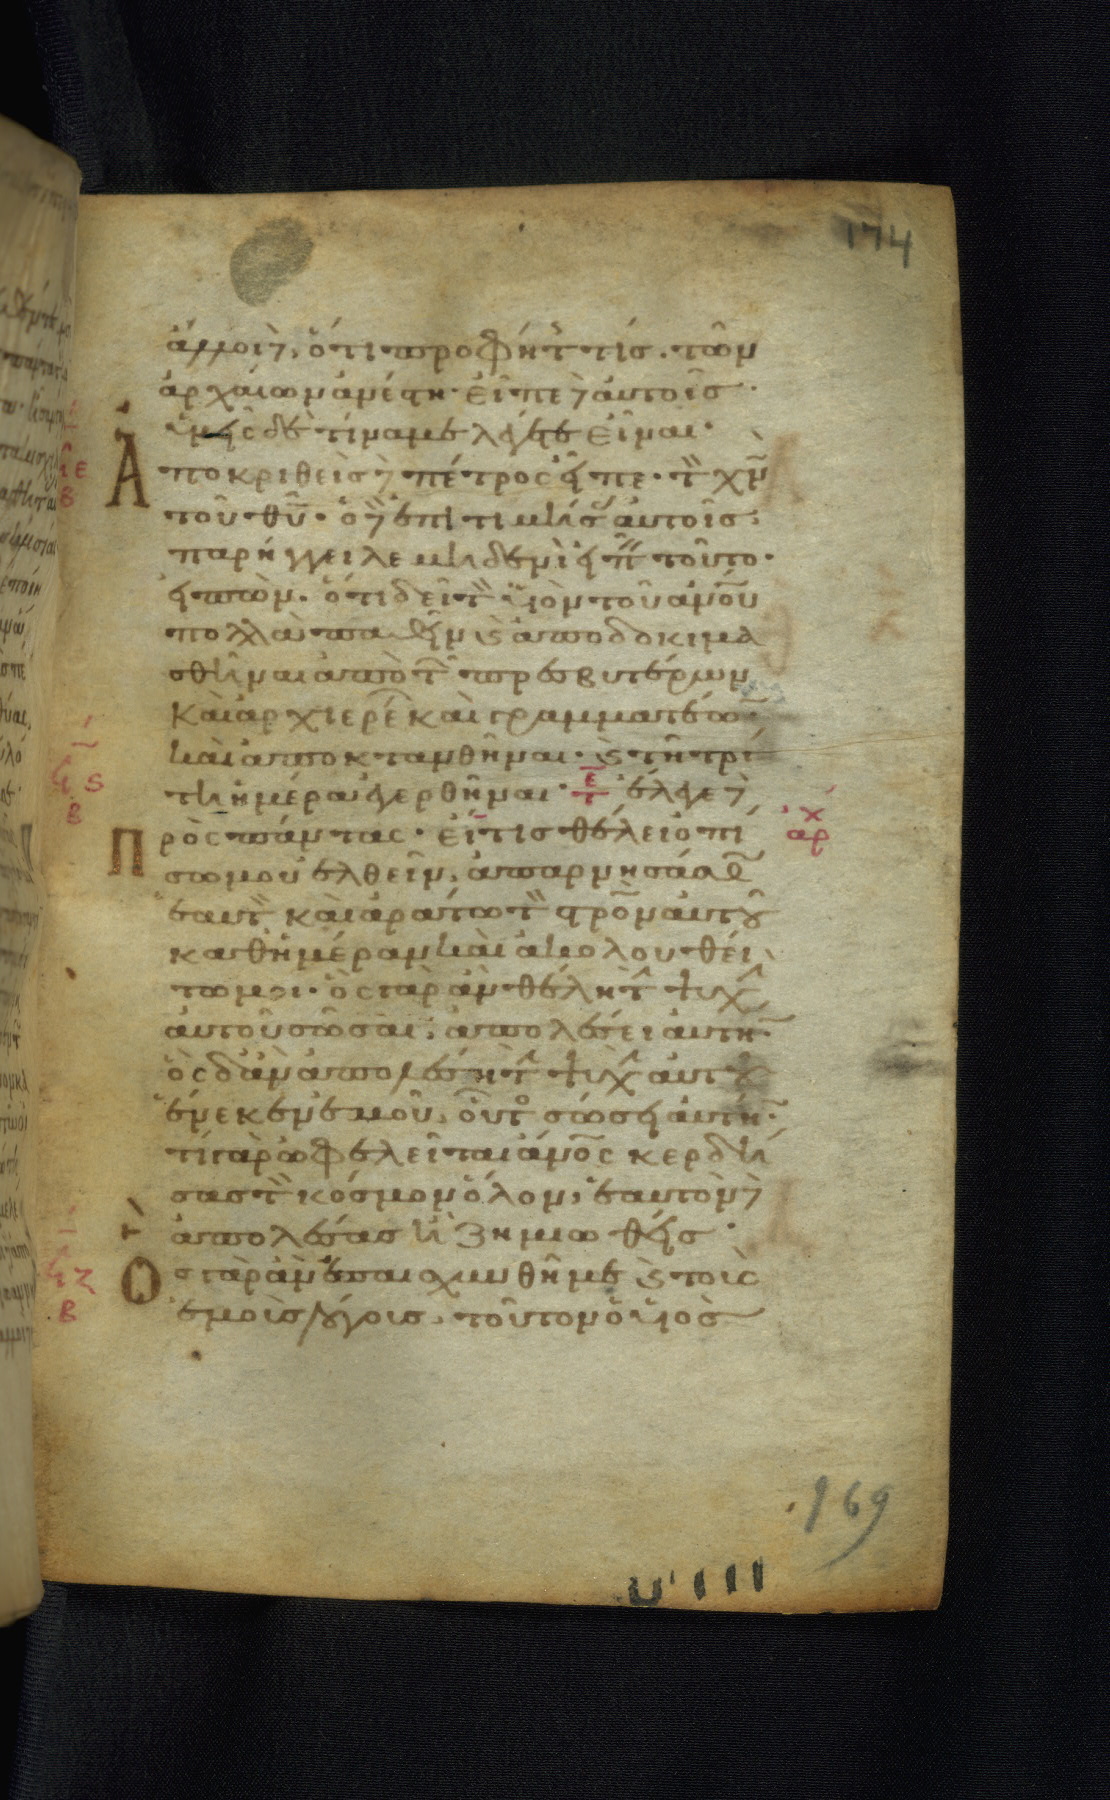 174
ἄλλοι δὲ, ὅτι προφήτης τίς. τῶν
ἀρχαίων ἀνέστη· εἶπε δὲ αὐτοῖς·
ὑμεῖς δὲ τίνα με λέγετε εἶναι·
Ἀποκριθεὶς δὲ πέτρος εἶπε· τὸν χν
τοῦ θυ· ὁ δὲ ἐπιτιμήσας αὐτοῖς·
παρήγγειλε μηδενὶ εἰπεῖν τοῦτο·
εἰπὼν· ὅτι δεῖ τὸν υἱὸν τοῦ ανου
πολλὰ παθεῖν καὶ ἀποδοκιμα
σθῆναι ἀπὸ τῶν πρεσβυτέρων
καὶ ἀρχιερέων καὶ γραμματέων·
καὶ ἀποκτανθῆναι· καὶ τῆ τρί
τη ἡμέρα ἐγερθῆναι· τε ἔλεγε δὲ
Πρὸς πάντας· εἴ τις θέλει ὀπί
αρχ
σω μου ἐλθεῖν, ἀπαρνησάσθω
ἑαυτὸν καὶ ἀράτω τὸν στρον αὐτοῦ
καθημέραν καὶ ἀκολουθεί
τω μοι· ὃς γὰρ ἂν θέλη τὴν ψυχὴν
αὐτοῦ σῶσαι, ἀπολέσει αὐτήν·
ὃς δ' ἂν ἀπολέση τὴν ψυχὴν αὐτοῦ
ἕνεκεν ἐμοῦ, οὗτος σώσει αὐτήν·
τί γὰρ ὠφελεῖται ανος κερδή
σας τὸν κόσμον ὅλον, ἑαυτὸν δὲ
ἀπολέσας ἢ ζημιωθείς·
Ὃς γὰρ ἂν ἐπαισχυνθῆ με καὶ τοὺς
ἐμοὺς λόγους, τοῦτον ὁ υἱὸς
169